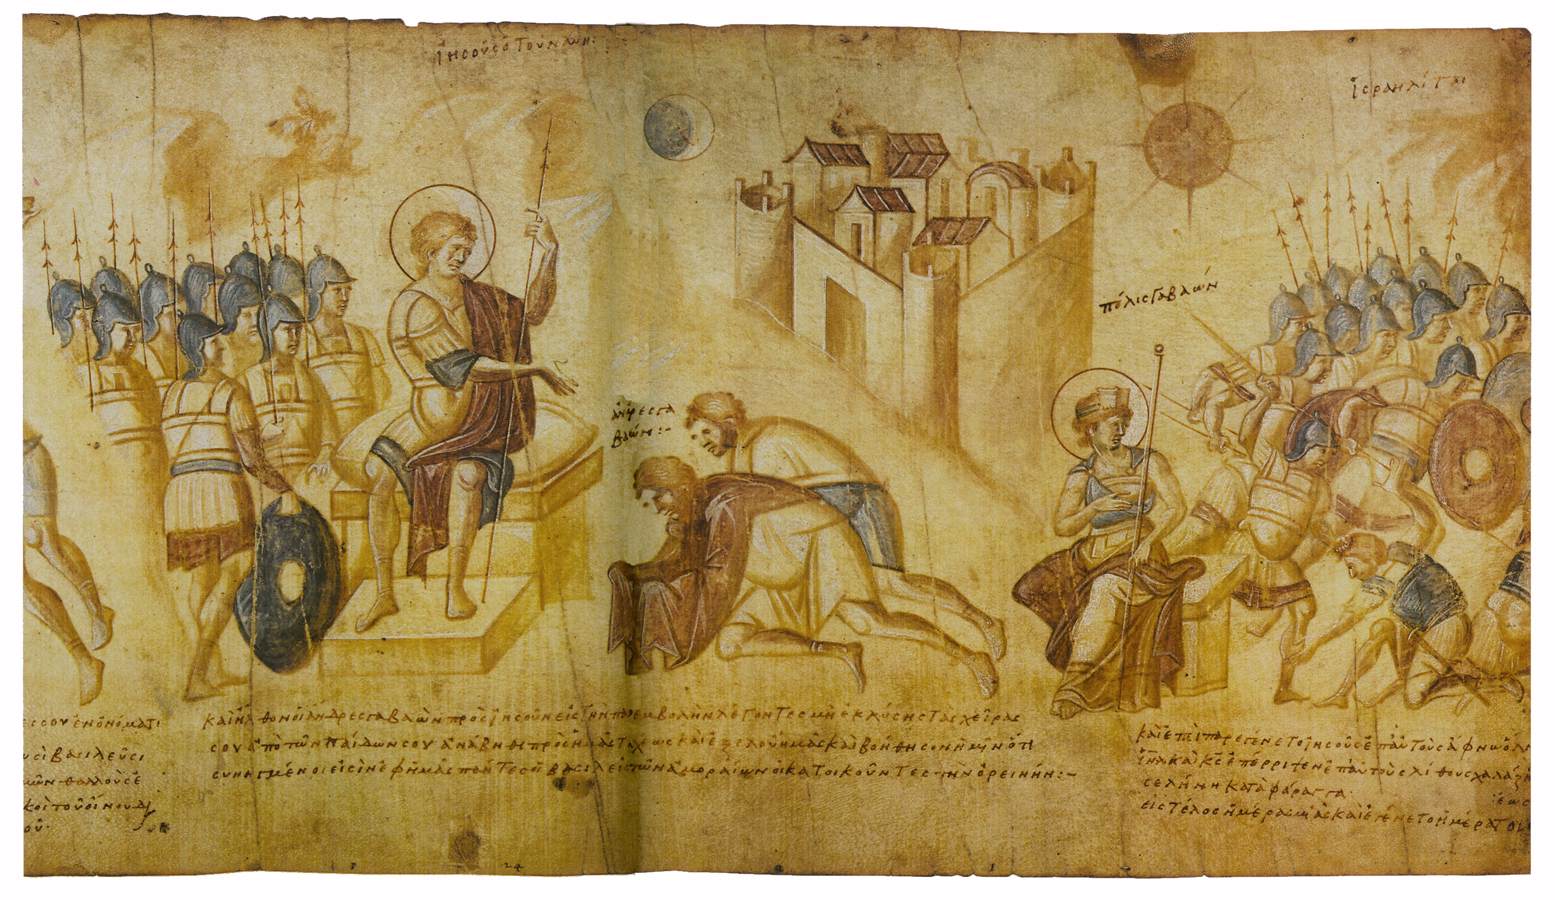 ἰησοῦς ὁ τοῦ ναυῆ:
ἰσραηλίται
πόλις γαβαών
ἄνδρες γα
βαών:-
σου ἐν ὀνόματι
βασιλεῦσι
θαλλοὺς
τοῦ οἴνου
καὶ ἦλθον οἱ ἄνδρες γαβαὼν πρὸς ἰησοῦν εἰς τὴν παρεμβολὴν λέγοντες μὴ ἐκλύσης τὰς χεῖρας
σου ἀπὸ τῶν παίδων σου ἀνάβηθι πρὸς ἡμᾶς ταχέως καὶ ἐξελοῦ ἡμᾶς καὶ βοήθησον ἡμῖν ὅτι
συνηγμένοι εἰσὶν ἐφ ἡμᾶς πάντες οἱ βασιλεῖς τῶν ἀμοραίων οἱ κατοικοῦντες τὴν ὀρεινήν:-
καὶ ἐπιπαρεγένετο ἰησοῦς ἐπ αὐτοὺς ἄφνω
καὶ κς ἐπέρριψεν ἐπ αὐτοὺς λίθους
σελήνη κατὰ φάραγγα· ἕως
εἰς τέλος ἡμέρας μιᾶς καὶ ἐγένετο ἡμέρα